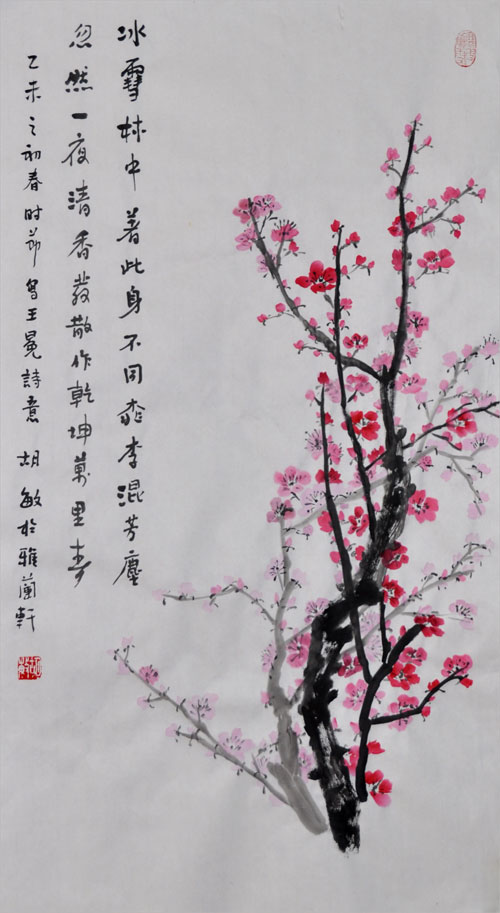 冰雪林中著此身不同桃李混芳塵
忽然一夜清香發散作乾坤萬里春
乙未之初春时节写王冕詩意 胡敏於雅蘭軒